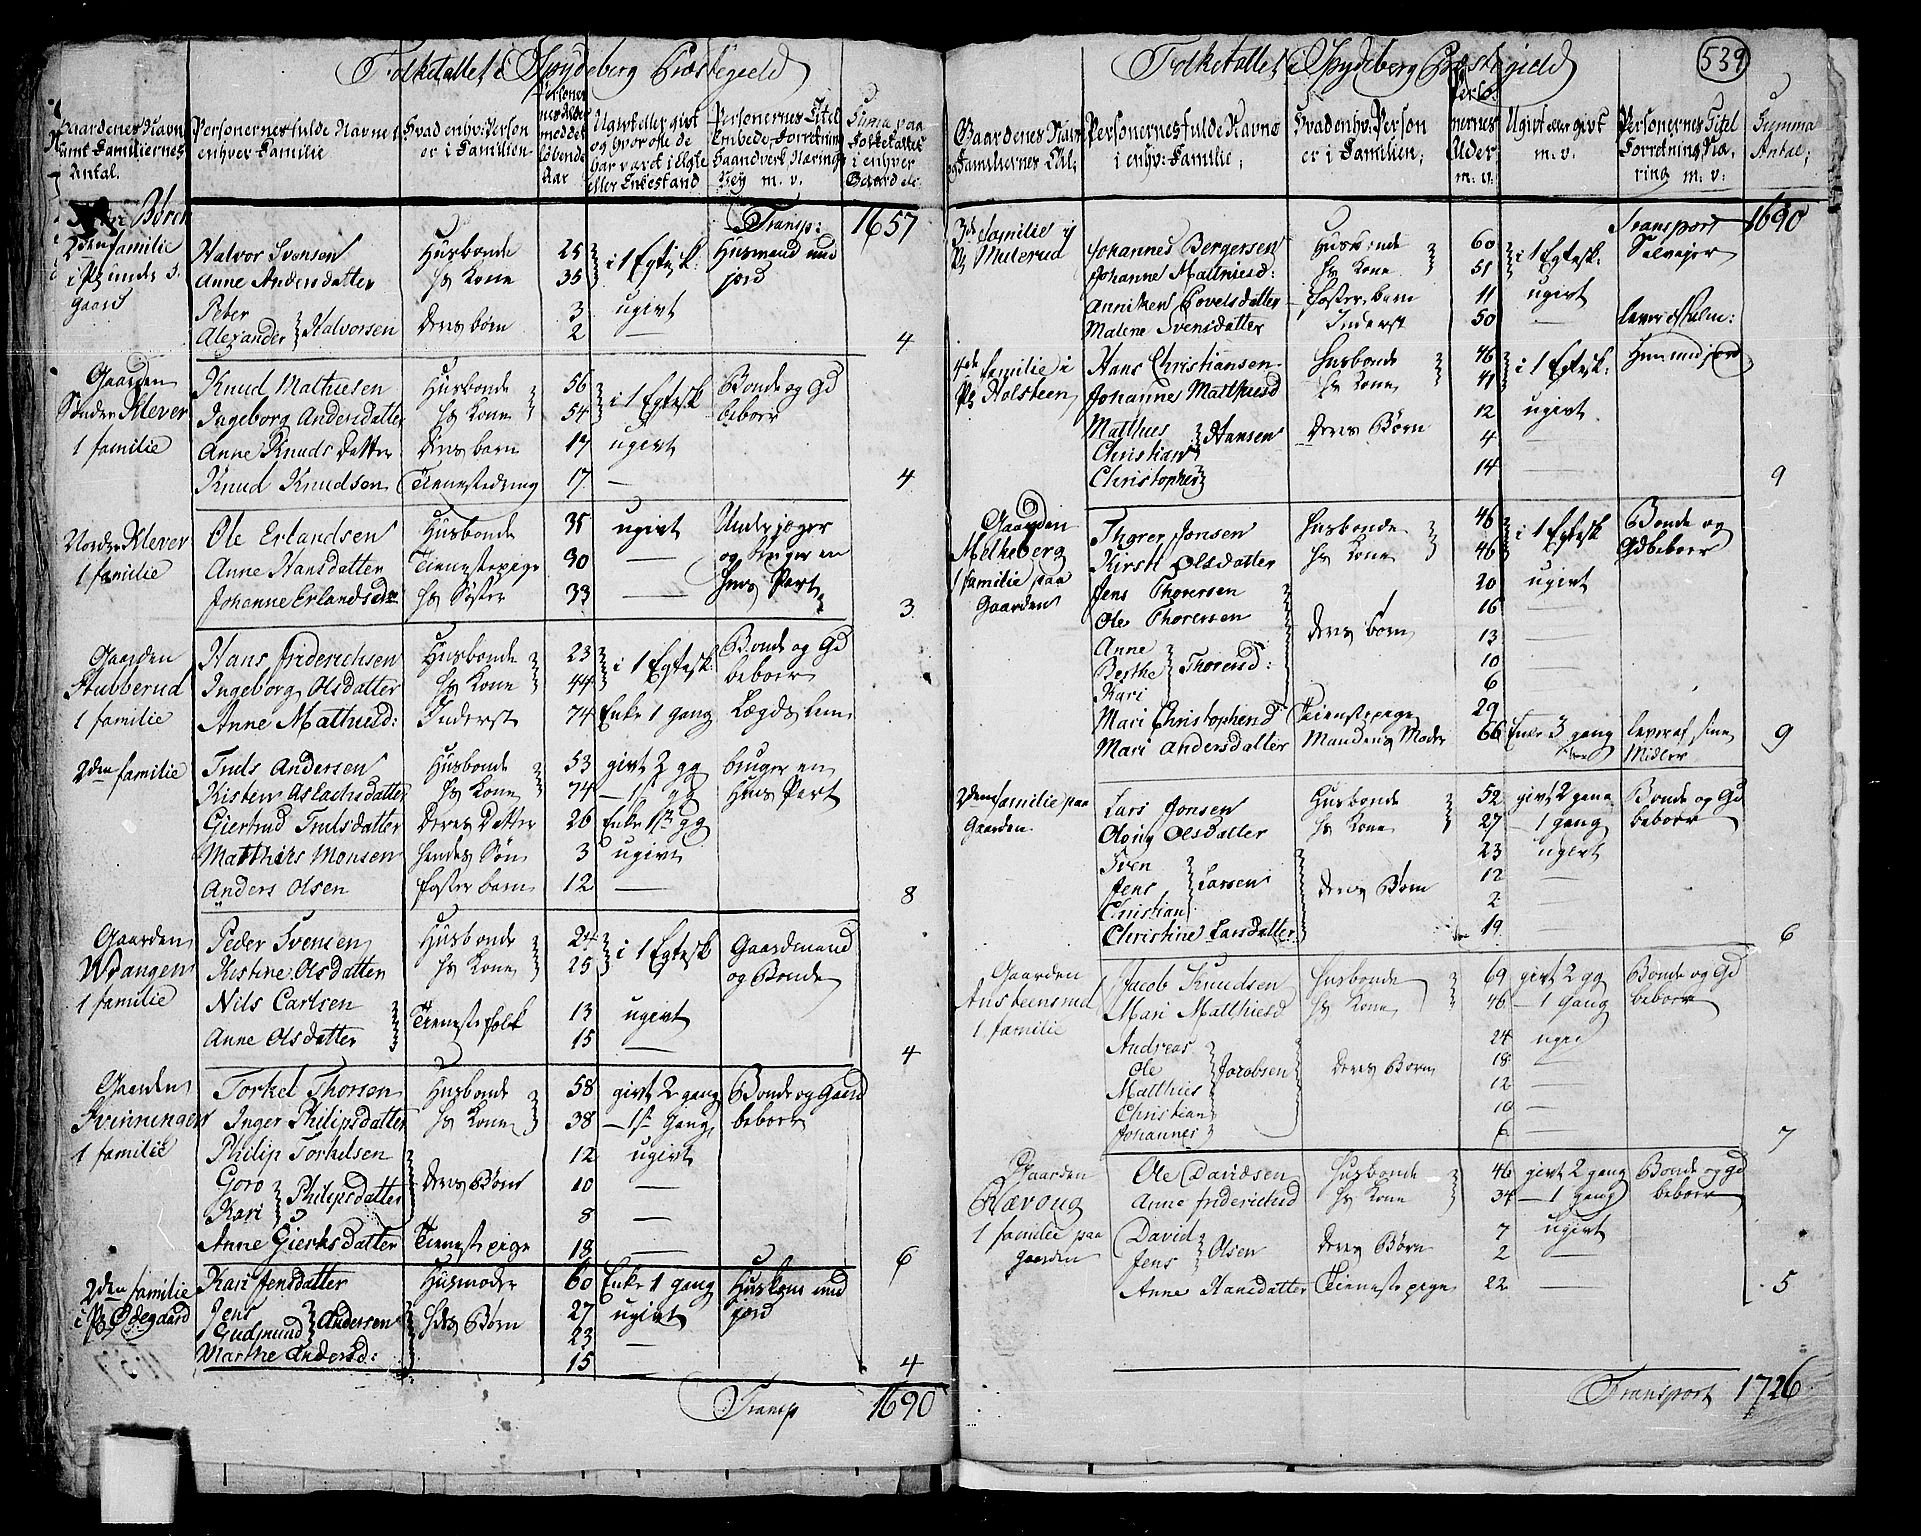 Folketallet i Spydeberg Præstegield
Gaardenes Navn samt Familiernes Antal. | Personernes fulde Navne i enhver Familie | Hvad enhv: Person er i Familien | Personernes Alder med det løbende Aar | Ugivt eller givt og hvor ofte de har været i Egte eller Enkestand | Personernes Titel Embede, Forretning Haandverk Næringsvey m. v. | Suma paa Folketallet i enhver Gaard
Transp: 1657
2den familie i Pl: under S: Gaard
Halvor Svensen Husbonde 25 i 1 Egtesk: Husmand med jord
Anne Andersdatter hs Kone 35
Peter 3 ugivt
Alexander Halvorsen deres børn 2 — 4
Gaarden Sønder Klever 1 familie
Knud Mathiesen Husbonde 56 i 1 Egtesk Bonde og Gd beboer
Ingeborg Andersdatter hs Kone 54
Anne Knuds Datter deres barn 17 ugivt
Knud Knudsen Tienestedreng 17 — 4
Nordre Klever 1 familie
Ole Erlandsen Husbonde 35 ugivt Underjæger og bruger en
Anne Hansdatter Tienestepige 30 —
Johanne Erlandsdr hs Søster 33 — 3
Gaarden Stubberud 1 familie
Hans friderichsen Husbonde 23 i 1 Egtesk: Bonde og Gd beboer
Ingeborg Olsdatter hs Kone 44
Anne Mathiesd: Inderst 74 Enke 1 gang Lægdslem
2den familie
Truls Andersen Husbonde 53 givt 2 gg bruger en Part
Kisten Aslachsdatter hs Kone 74 — 1st gg
Giertrud Trulsdatter Deres Datter 26 Enke 1st gg
Matthias Monsen hendes Søn 3 ugivt
Anders Olsen foster barn 12 — 8
Gaarden Wrangen 1 familie
Peder Svensen Husbonde 24 i 1 Egtesk Gaardmand og Bonde
Kistine Olsdatter hs Kone 25
Nils Carlsen Tienestefolk 13 ugivt
Anne Olsdatter 15 — 4
Gaarden 1 familie
Torkel Thorsen Husbonde 58 givt 2 gang Bonde og Gaard beboer
Inger Philipsdatter hs Kone 38 — 1st Gang
Philip Torkelsen 12 ugivt
Goro Philipsdatter deres Børn 10 —
Kari 8 —
Anne Giertsdatter Tienestepige 18 — 6
2den familie i Pl: Ødegaard
Kari Jensdatter Husmoder 60 Enke 1 gang Huskone med jord
Jens 27 ugivt
Gudmund Andersen hds Børn 23 —
Marthe Andersd: 15 4
Transp 1690
539
Folketallet i Spydeberg Præstegield
Gaardenes Navn og Familiernes Tal; | Personernes fulde Navne i enhv: Familie; | Hvad enhv: Person er i Familien; | Personernes Alder m. v: | Ugivt eller givt m. v. | Personernes Titel Forretning Næring m. v: | Summa Antal;
Transport 1690
3de familie i Pl: Mulerud
Johannes Bergersen Husbonde 60 i 1 Egtesk:
Johanne Matthiesd: hs Kone 51
Anniken Povelsdatter foster barn 11 ugivt
Malene Svensdatter Inderst 50 —
4de familie i Pl: Holsteen
Hans Christiansen Husbonde 46 i 1 Egtesk:
Johanne Matthiesd hs Kone 41
Matthies Hansen deres Børn 12 ugivt
Christian 4 —
Christopher 14 — 9
Gaarden Melkeberg 1 familie paa Gaarden
Thorer Jonsen Husbonde 46 i 1 Egtesk Bonde og Gdbeboer
Kirsti Olsdatter hs Kone 46
Jens Thorersen 20 ugivt
Ole Thorersen 16 —
Anne deres børn 13 —
Berthe Thorersd: 10 —
Kari 6
Mari Christophersd Tienestepige 29
Mari Andersdatter Mandens Moder 66 Enke 3 gang lever af sine Midler 9
2den familie paa Gaarden
Lars Jonsen Husbonde 52 givt 2 gang Bonde og Gd beboer
Olvig Olsdatter hs Kone 27 — 1 gang
Sven 23 ugivt
Jens Larsen deres Børn 12 —
Christian 2
Christine Larsdatter 19 6
Gaarden Austeensrud 1 familie
Jacob Knudsen Husbonde 69 givt 2 gg Bonde og Gd beboer
Mari Matthiesd hs Kone 46 — 1 Gang
Andreas 24
Ole Jacobsen deres Børn 18 —
Matthies 12
Christian 10 —
Johannes 6 — 7
Gaarden 1 familie paa Gaarden
Ole Davidsen Husbonde 46 givt 2 gang Bonde og Gd beboer
Anne friderichsd hs Kone 34 — 1 gang
David 7 ugivt
Jens Olsen deres Børn 2 —
Anne Hansdatter Tienestepige 22 — 5
Transport 1726